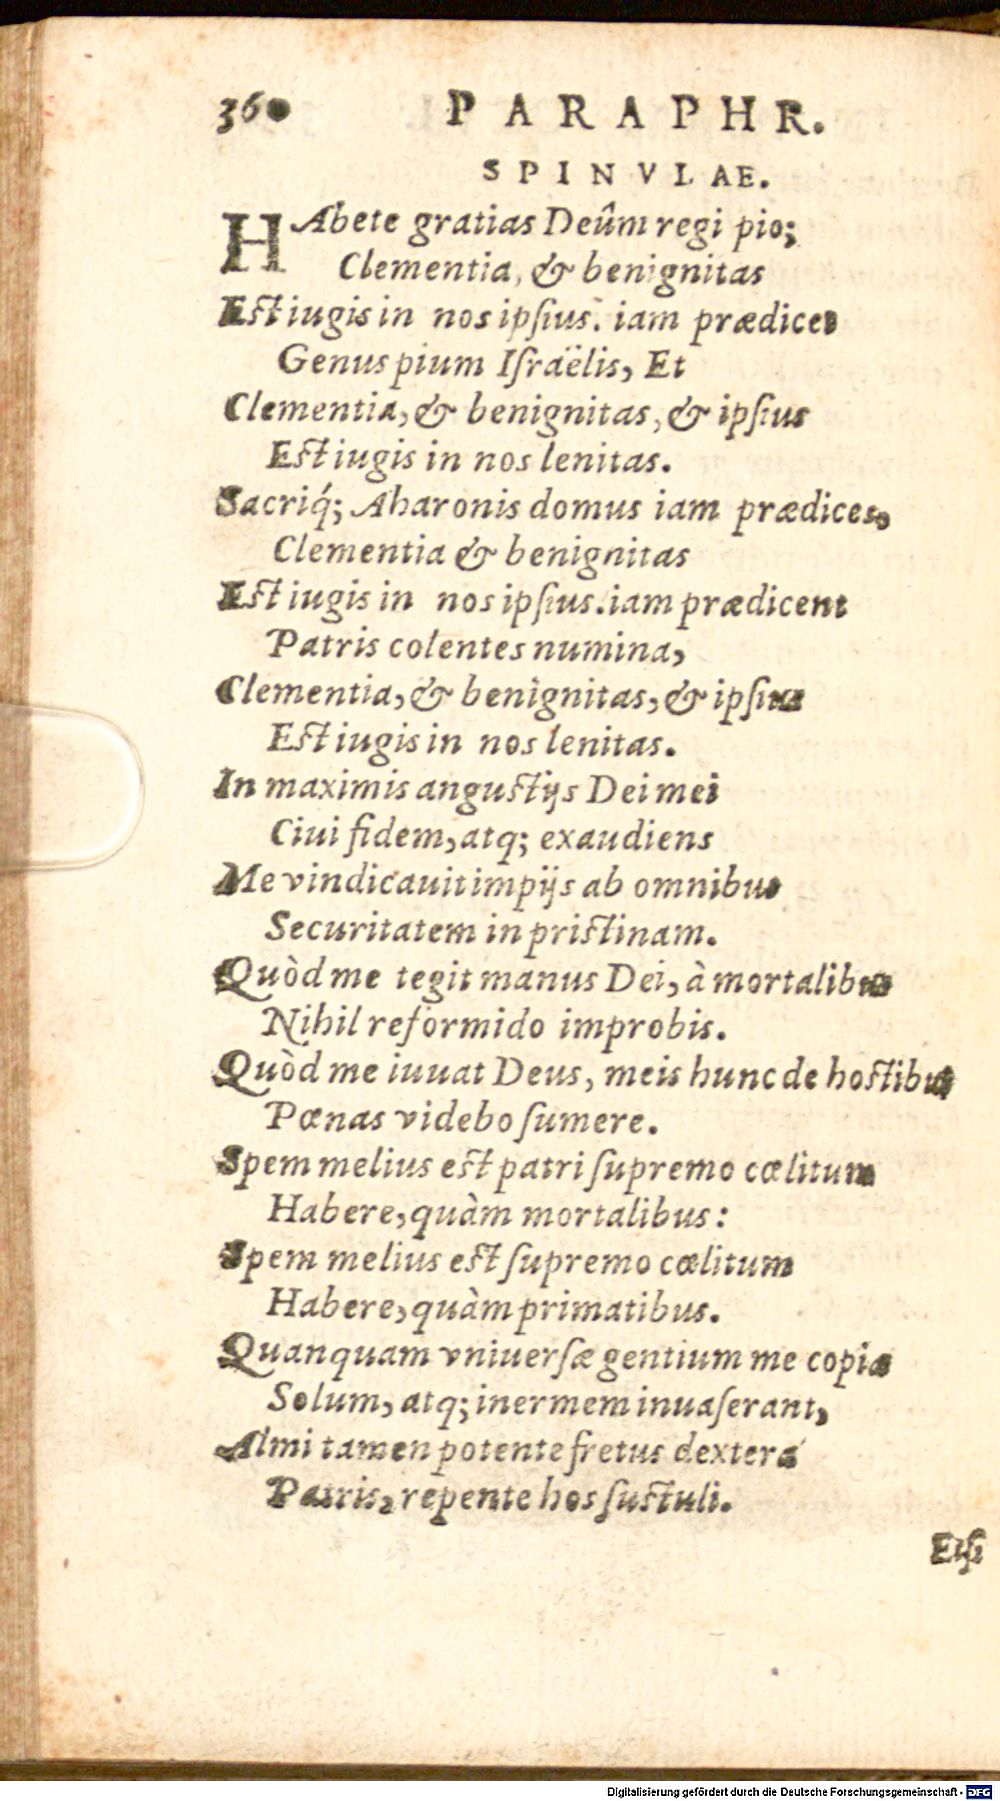 360 PARAPHR.
SPINVLAE.
HAbete gratias Deûm regi pio;
Clementia, & benignitas
Est iugis in nos ipsius. iam prædices
Genus pium Israëlis, Et
Clementia, & benignitas, & ipsius
Est iugis in nos lenitas.
Sacriq́; Aharonis domus iam prædices,
Clementia & benignitas
Est iugis in nos ipsius. iam prædicent
Patris colentes numina,
Clementia, & benignitas, & ipsius
Est iugis in nos lenitas.
In maximis angustijs Dei mei
Ciui fidem, atq; exaudiens
Me vindicauit impijs ab omnibus
Securitatem in pristinam.
Quòd me tegit manus Dei, à mortalibus
Nihil reformido improbis.
Quòd me iuuat Deus, meis hunc de hostibus
Pœnas videbo sumere.
Spem melius est patri supremo cœlitum
Habere, quàm mortalibus:
Spem melius est supremo cœlitum
Habere, quàm primatibus.
Quanquam vniuersæ gentium me copiæ
Solum, atq; inermem inuaserant,
Almi tamen potente fretus dextera
Patris, repente hos sustuli.
Etsi
Digitalisierung gefördert durch die Deutsche Forschungsgemeinschaft - DFG